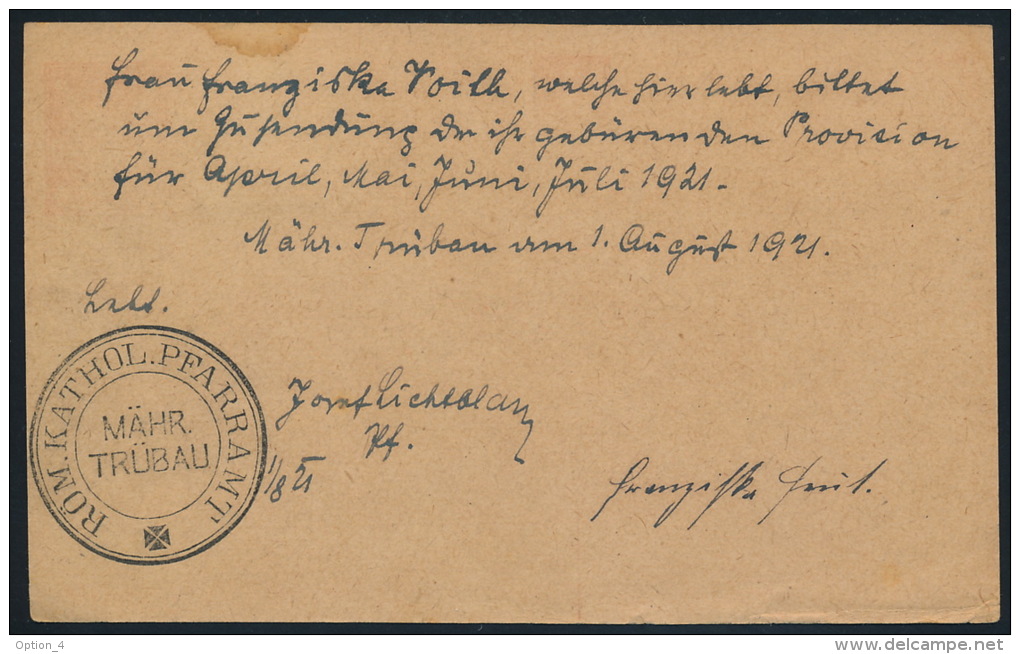 Frau Franziska Voith, welche hier lebt, bittet
um Zusendung der ihr gebürenden Provision
für April, Mai, Juni, Juli 1921.
Mähr. Trübau am 1. August 1921.
Lebt.
RÖM. KATHOL. PFARRAMT
MÄHR.
TRÜBAU
Josef
Pf.
1/8 21
Franziska
Option_4
www.delcampe.net